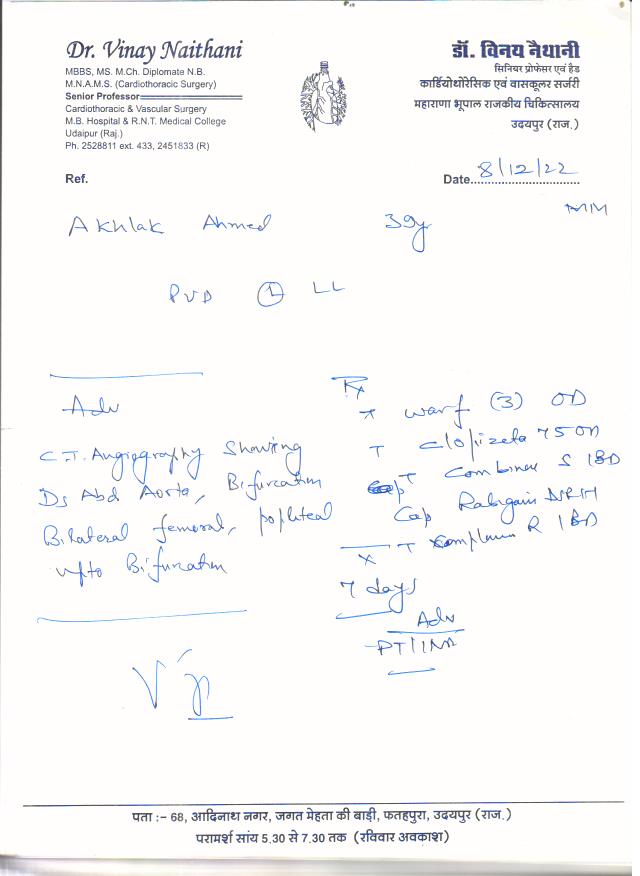 Dr. Vinay Naithani
MBBS, MS. M.Ch. Diplomate N.B.
M.N.A.M.S. (Cardiothoracic Surgery)
Senior Professor
Cardiothoracic & Vascular Surgery
M.B. Hospital & R.N.T. Medical College
Udaipur (Raj.)
Ph. 2528811 ext. 433, 2451833 (R)
डॉ. विनय नैथानी
सिनियर प्रोफेसर एवं हैड
कार्डियोथोरेसिक एवं वासकूलर सर्जरी
महाराणा भूपाल राजकीय चिकित्सालय
उदयपुर (राज.)
Ref.
Date 8/12/22
Akhlak Ahmed 39y
PVD (L) LL
Adv
C.T. Angiography Showing
Ds Abd Aorta, Bifurcation
Bilateral femoral, popliteal
upto Bifurcation
Rx
Warf (3) OD
T Clopizeta 75 OD
T Combinex S 1BD
Cap Rabigain DSR 1H
T R 1BD
x 7 days
Adv
PT/INR
पता :- 68, आदिनाथ नगर, जगत मेहता की बाड़ी, फतहपुरा, उदयपुर (राज.)
परामर्श सांय 5.30 से 7.30 तक (रविवार अवकाश)